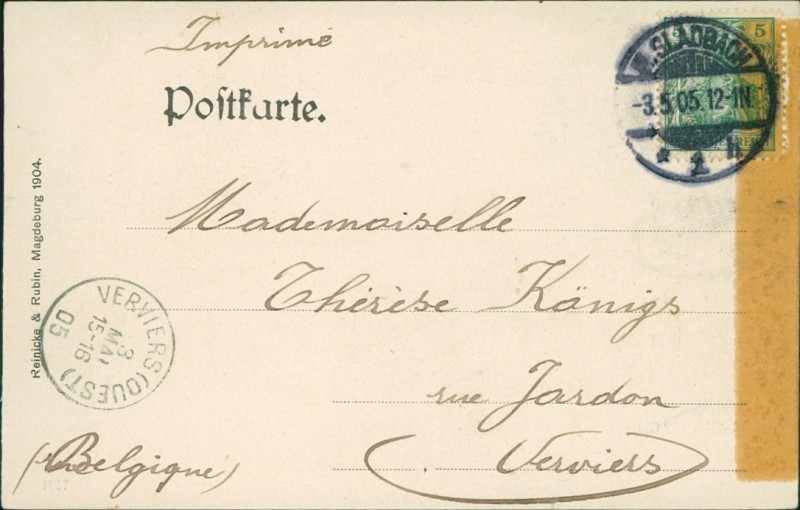 Imprimé
Postkarte.
5
M. GLADBACH
-3.5.05.12-1N.
* 1 h
Mademoiselle
Thérèse Königs
rue Jardon
Verviers
(Belgique)
VERVIERS (OUEST)
3
MAI
15-16
05
Reinicke & Rubin, Magdeburg 1904.